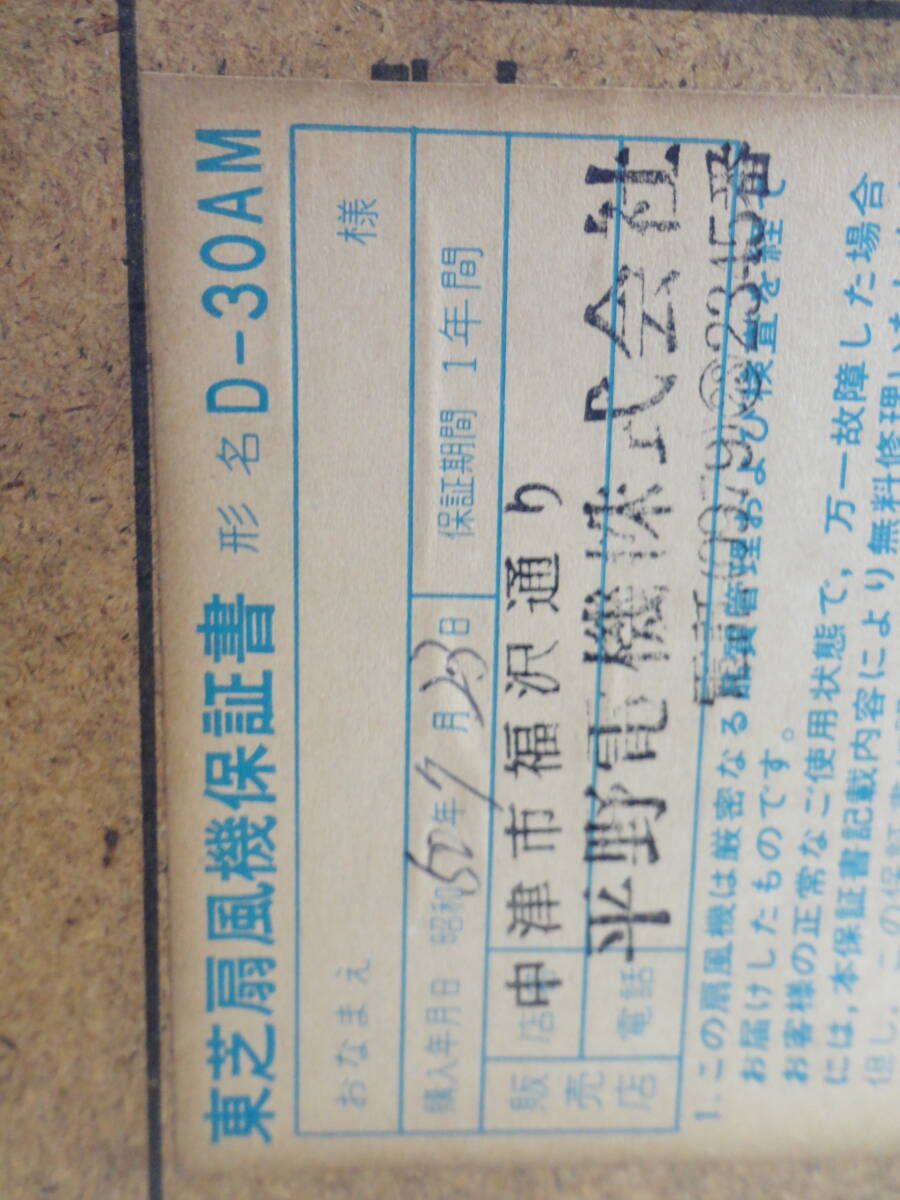 東芝扇風機保証書 形名 D-30AM
おなまえ 様
購入年月日 昭和52年7月23日 保証期間 1年間
販売店 店 中津市福沢通り
平野電機株式会社
電話 電話(09798)②2345番
1. この扇風機は厳密なる品質管理および検査を経て
お届けしたものです。
お客様の正常なご使用状態で,万一故障した場合
には,本保証書記載内容により無料修理いたします